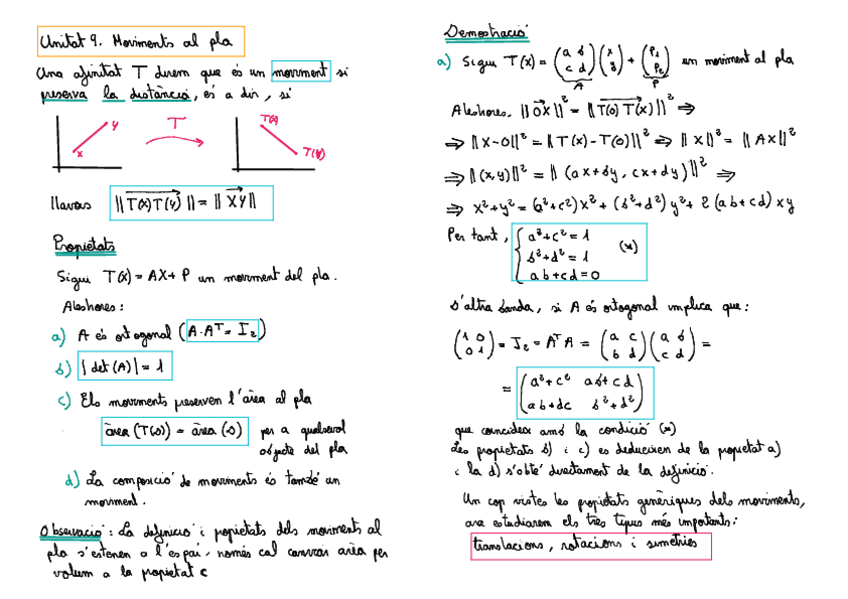 Unitat 9. Moviments al pla
Una afinitat T direm que és un moviment si
preserva la distància, és a dir, si
x y T T(x) T(y)
llavors ||T(x)T(y)|| = ||XY||
Propietats
Sigui T(x) = AX + P un moviment del pla.
Aleshores:
a) A és ortogonal (A·Aᵀ = I₂)
b) |det(A)| = 1
c) Els moviments preserven l'àrea al pla
àrea (T(S)) = àrea (S) per a qualsevol
objecte del pla
d) La composició de moviments és també un
moviment.
Observació: La definició i propietats dels moviments al
pla s'estenen a l'espai, només cal canviar àrea per
volum a la propietat c
Demostració
a) Sigui T(x) = (a b / c d)(x / y) + (P₁ / P₂) un moviment al pla
A P
Aleshores, ||OX||² = ||T(0)T(x)||² ⇒
⇒ ||X-0||² = ||T(x) - T(0)||² ⇒ ||X||² = ||AX||²
⇒ ||(x,y)||² = ||(ax+by, cx+dy)||² ⇒
⇒ x²+y² = (a²+c²)x² + (b²+d²)y² + 2(ab+cd)xy
Per tant, { a²+c² = 1
b²+d² = 1 (*)
ab+cd = 0
D'altra banda, si A és ortogonal implica que:
(1 0 / 0 1) = I₂ = AᵀA = (a c / b d)(a b / c d) =
= (a²+c² ab+cd / ab+dc b²+d²)
que coincideix amb la condició (*)
Les propietats b) i c) es dedueixen de la propietat a)
i la d) s'obté directament de la definició.
Un cop vistes les propietats genèriques dels moviments,
ara estudiarem els tres tipus més importants:
translacions, rotacions i simetries